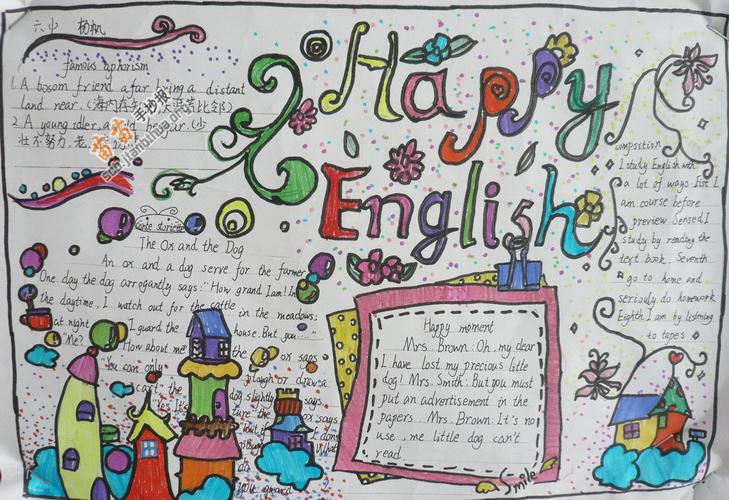 六中 杨帆
famous aphorism
1. A bosom friend afar bring a distant
land near. (海内存知己,天涯若比邻)
2. A young idler, an old
壮不努力,老
苗苗手抄报
Happy
English
composition
I study English with
a lot of ways. Fist I
am course before
preview. Sensed I
study by reading the
text book. Seventh
go to home and
seriously do homework
Eighth I am by listening
to tapes
The Ox and the Dog
An ox and a dog serve for the farmer
One day the dog arrogantly says: "How grand I am! In
the daytime, I watch out for the cattle in the meadows;
at night I guard the house. But you...."
"Me? How about me" the ox says
"You can only plough or draw a
cart" the dog slightly says
"Yes. It's ture" the ox says
you guard
Happy moment
Mrs. Brown: Oh, my dear
I have lost my precious little
dog! Mrs. Smith: But you must
put an advertisement in the
papers. Mrs. Brown: It's no
use, me little dog can't
read.
Smile